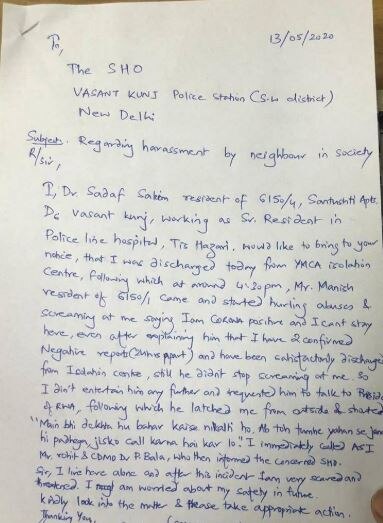 13/05/2020
To,
The SHO
VASANT KUNJ Police Station (S.W district)
New Delhi
Subject: Regarding harassment by neighbour in society
R/sir,
I, Dr. Sadaf Salim resident of 6150/4, Santushti Apts.
D6 vasant kunj, working as Sr. Resident in
Police line hospital, Tis Hazari, would like to bring to your
notice, that I was discharged today from YMCA isolation
Centre, following which at around 4:20pm, Mr. Manish
resident of 6150/1 came and started hurling abuses &
screaming at me saying Iam Corona positive and I cant stay
here, even after explaining him that I have 2 confirmed
Negative report (24hrs apart) and have been satisfactorily discharge
from Isolation centre, still he didnt stop screaming at me. So
I din't entertain him any further and requested him to talk to Presid
of RWA, following which he latched me from outside & shouted
"Main bhi dekhta hu bahar kaise nikalti ho. Ab toh tumhe yahan se jana
hi padhega, jisko call karna hai kar lo." I immediately called ASI
Mr. rohit & CDMO Dr P. Bala, who then informed the concerned SHO.
Sir, I live here alone and after this incident Iam very scared and
threatened. I am worried about my safety in future.
Kindly look into the matter & please take appropriate action.
Thanking You,